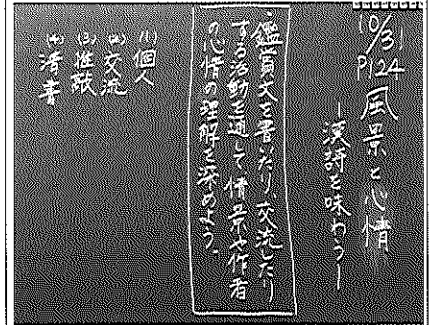 10/31
P124
風景と心情
―漢詩を味わう―
鑑賞文を書いたり交流したり
する活動を通して情景や作者
の心情の理解を深めよう。
(1)個人
(2)交流
(3)推敲
(4)清書